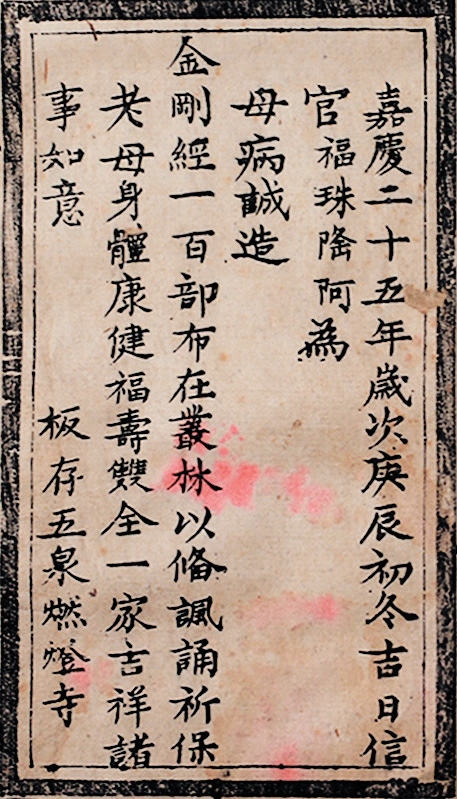 嘉慶二十五年歲次庚辰初冬吉日信
官福珠隆阿為
母病誠造
金剛經一百部布在叢林以俻諷誦祈保
老母身軆康健福壽雙全一家吉祥諸
事如意 板存五泉燃燈寺